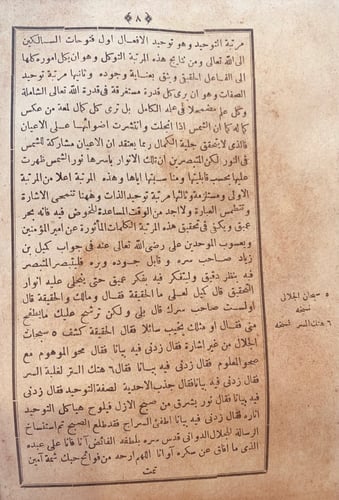 ﴿٨﴾
مرتبة التوحيد وهو توحيد الافعال اول فتوحات السالكين
الى الله تعالى ومن نتايج هذه المرتبة التوكل وهو ان يكل اموره كلها
الى الفاعل الحقيقى ويثق بعنايته وجوده وثانيها مرتبة توحيد
الصفات وهو ان يرى كل قدرة مستغرقة فى قدرة الله تعالى الشاملة
وكل علم مضمحلا فى علمه الكامل بل يرى كل كمال لمعة من عكس
كماله كما ان الشمس اذا انجلت وانتشرت اضوائها على الاعيان
فالذى لا يتحقق جلية الكمال ربما يعتقد ان الاعيان مشاركة للشمس
فى النور لكن المتبصر يرى ان تلك الانوار باسرها نور الشمس ظهرت
عليها بحسب قابليتها ومناسبتها اياها وهذه المرتبة اعلا من المرتبة
الاولى ومستلزمة وثالثها مرتبة توحيد الذات وههنا تنمحى الاشارة
وتنطمس العبارة ولا اجد من الوقت المساعدة للخوض فيه فانه بحر
عميق ويكفى فى تحقيق هذه المرتبة الكلمات المأثورة عن امير المؤمنين
ويعسوب الموحدين على رضى الله تعالى عنه فى جواب كميل بن
زياد صاحب سره و قابل جوده وبره فليتبصر المتبصر
فيه بنظر دقيق وليتفكر فيه بفكر عميق حتى ينجلى عليه انوار
التحقيق قال كميل لعلى ما الحقيقة فقال ومالك والحقيقة قال
اولست صاحب سرك قال بلى ولكن ترشح عليك ما يطفح
منى فقال او مثلك يخيب سائلا فقال الحقيقة كشف ٥ سبحات
الجلال من غير اشارة فقال زدنى فيه بيانا فقال محو الموهوم مع
صحو المعلوم فقال زدنى فيه بيانا فقال ٦ هتك الستر لغلبة السر
فقال زدنى فيه بيانا فقال جذب الاحدية لصفة التوحيد فقال زدنى
فيه بيانا فقال نور يشرق من صبح الازل فيلوح هياكل التوحيد
اثاره فقال زدنى فيه بيانا فقال اطفئ السراج فقد طلع الصبح تم استنساخ
الرسالة للجلال الدوانى قدس سره بلطفه الفائض آنا فانا على عبده
الذى ما افاق عن سكره آوانا اللهم ارحه من فوائح حبك شمة آمين
تمت
٥ سبحات الجلال
نسخه
٦ هتك الستر نسخه